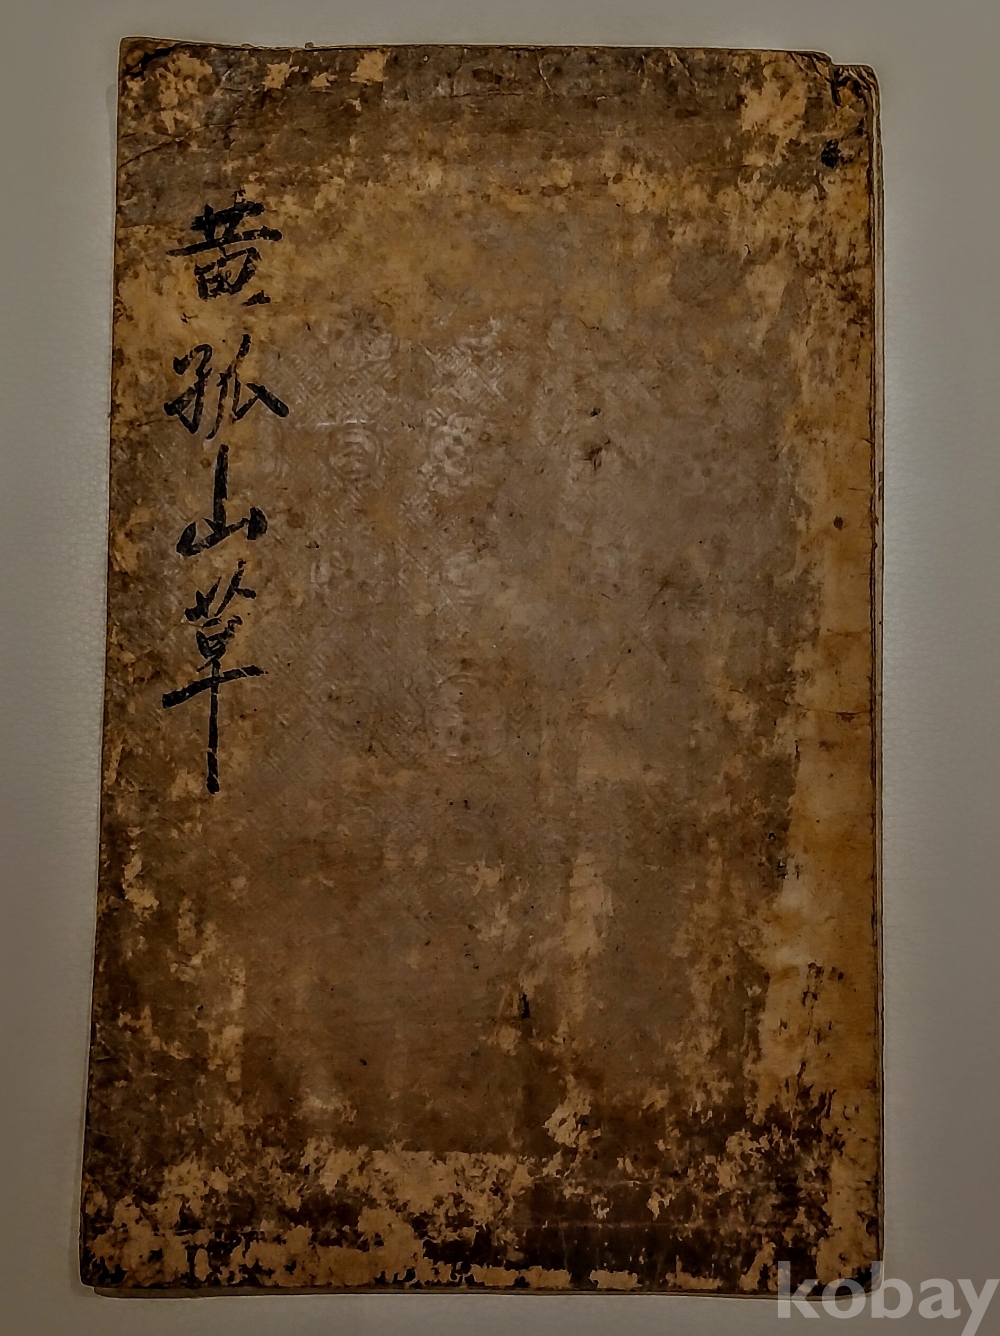 黃孤山草
kobay